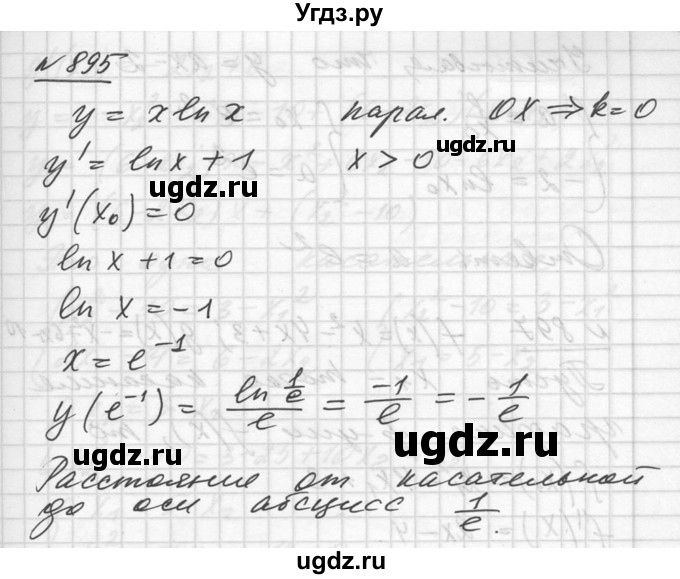 Угдз.ру
№ 895
y = x ln x    парал. OX ⇒ k = 0
ugdz.ru
y' = ln x + 1    x > 0
ugdz.ru
y'(x₀) = 0
ln x + 1 = 0
ln x = -1
x = e⁻¹
ugdz.ru
y(e⁻¹) = (ln 1/e)/e = -1/e = -1/e
ugdz.ru
Расстояние от касательной
до оси абсцисс 1/e.
ugdz.ru
ugdz.ru